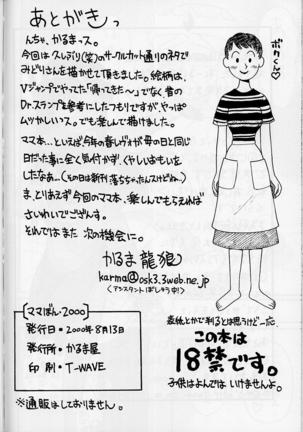 あとがきっ
んちゃ、かるまっス。
今回は久しぶり(笑)のサークルカット通りのネタで
みどりさんを描かせて頂きました。絵柄は、
Vジャンプでやってた「帰ってきた〜」でなく昔の
Dr.スランプを参考にしたつもりですが、やっぱ
ムツかしいっス。でも楽しんで描けました。
ママ本…といえば今年の春レヴォが母の日と同じ
日だった事に全く気付かず、くやしいおもいを
したなあ…(その日は新刊落ちちゃったんスけどね…)
ま、とりあえず今回のママ本、楽しんでもらえれば
さいわいでございます。
それではまた 次の機会に。
かるま龍狼
karma@osk3.3web.ne.jp
(アシスタントぼしゅう中!)
ボクくん♡
ママぼん・2000
発行日・2000年8月13日
発行所・かるま屋
印刷・T-WAVE
※通販はしておりません。
表紙とかで判るとは思うけど一応、
この本は
18禁です。
子供はよんではいけませんよ。